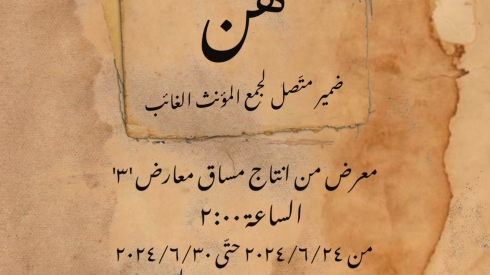 هن
ضمير متَّصل لجمع المؤنث الغائب
معرض من انتاج مساق معارض '٣'
الساعة ٢:٠٠
من ٢٠٢٤/٦/٢٤ حتَّى ٢٠٢٤/٦/٣٠